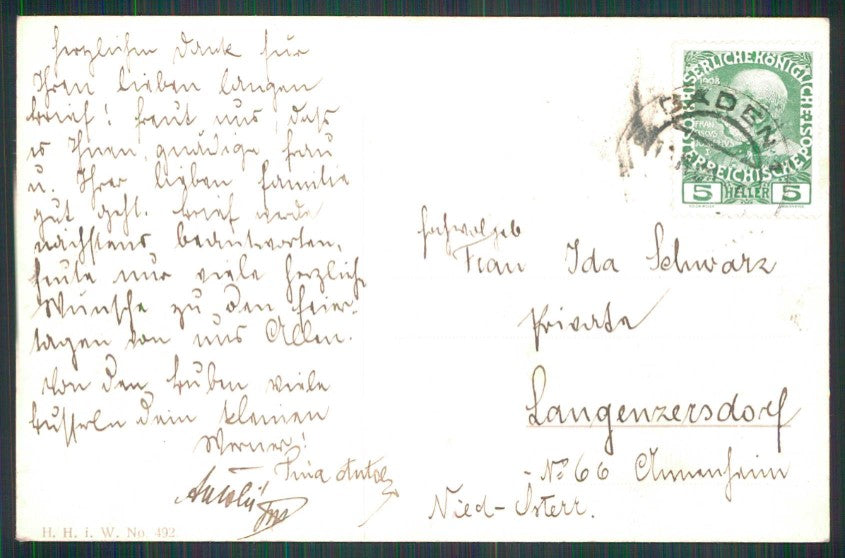 Herzlichen Dank für
Ihren lieben langen
Brief! Freut uns, daß
es Ihnen, gnädige Frau
u. Ihrer lieben Familie
gut geht. Brief werde
nächstens beantworten,
heute nur viele herzliche
Wünsche zu den Feier-
tagen von uns Allen.
Von den Buben viele
Busserln dem kleinen
Werner!
Tina Antol
H. H. i. W. No. 492
KAISERLICHE KÖNIGLICHE
ÖSTERREICHISCHE POST
1908
5 HELLER 5
BADEN
Hochwolgeb
Frau Ida Schwarz
Private
Langenzersdorf
No 66 Annenheim
Nied-Österr.